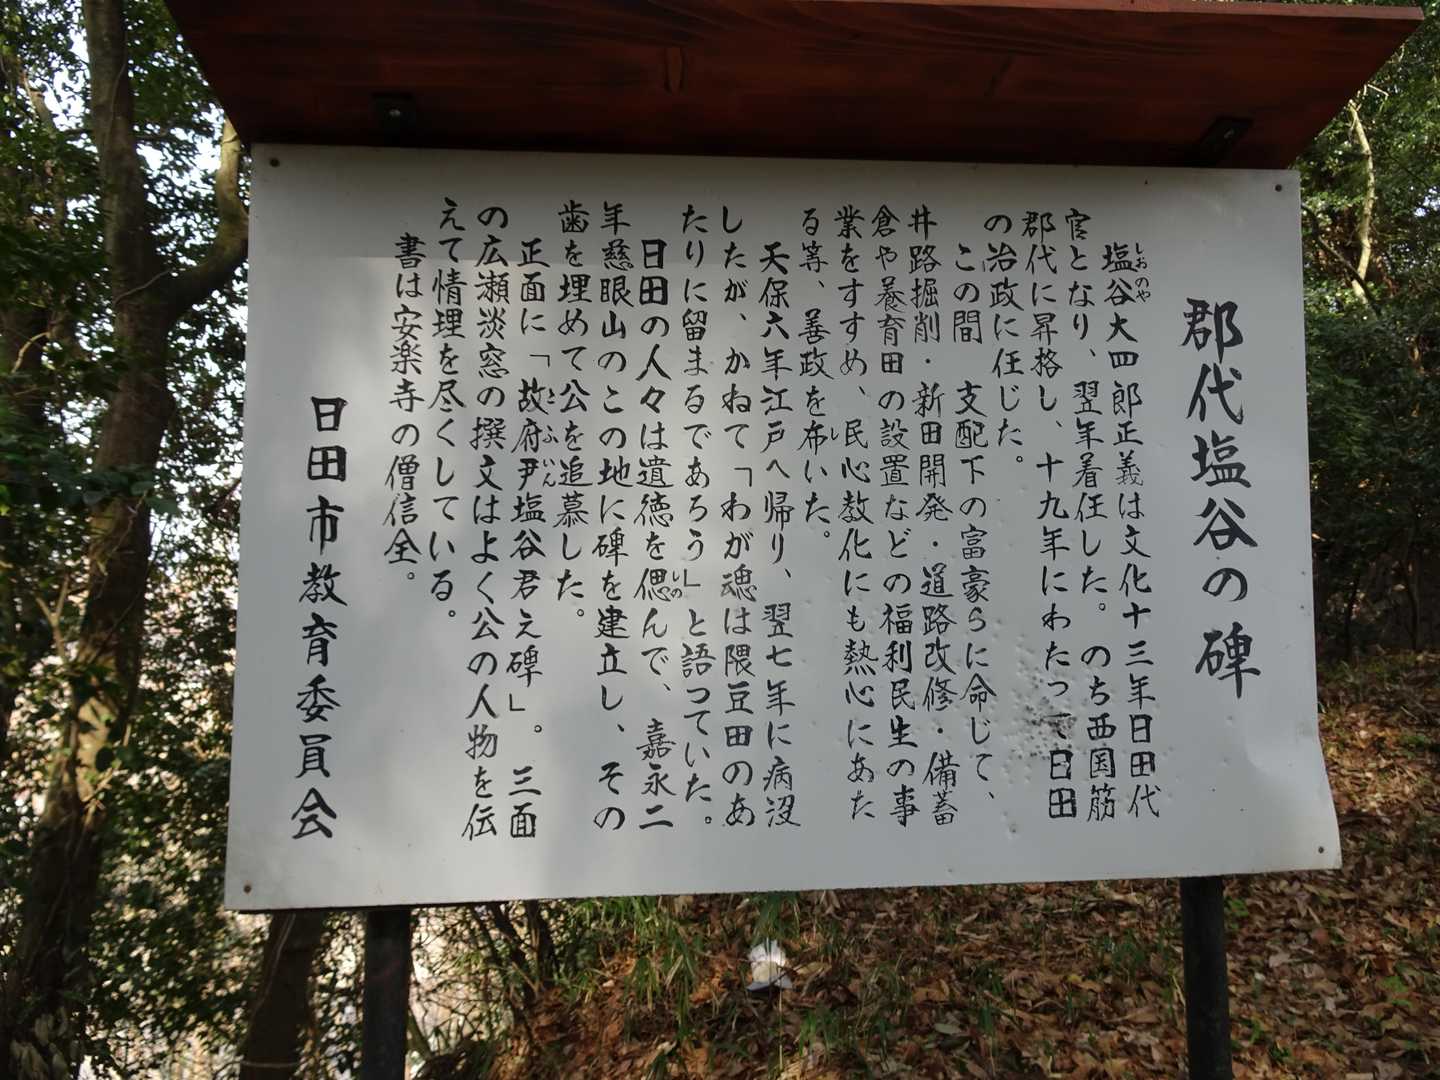 郡代塩谷の碑
塩谷大四郎正義は文化十三年日田代
しおのや
官となり、翌年着任した。のち西国筋
郡代に昇格し、十九年にわたって日田
の治政に任じた。
この間 支配下の富豪らに命じて、
井路掘削・新田開発・道路改修・備蓄
倉や養育田の設置などの福利民生の事
業をすすめ、民心教化にも熱心にあた
る等、善政を布いた。
し
天保六年江戸へ帰り、翌七年に病没
したが、かねて「わが魂は隈豆田のあ
たりに留まるであろう」と語っていた。
日田の人々は遺徳を偲んで、嘉永二
しの
年慈眼山のこの地に碑を建立し、その
歯を埋めて公を追慕した。
正面に「故府尹塩谷君え碑」。三面
こふいん
の広瀬淡窓の撰文はよく公の人物を伝
えて情理を尽くしている。
書は安楽寺の僧信全。
日田市教育委員会